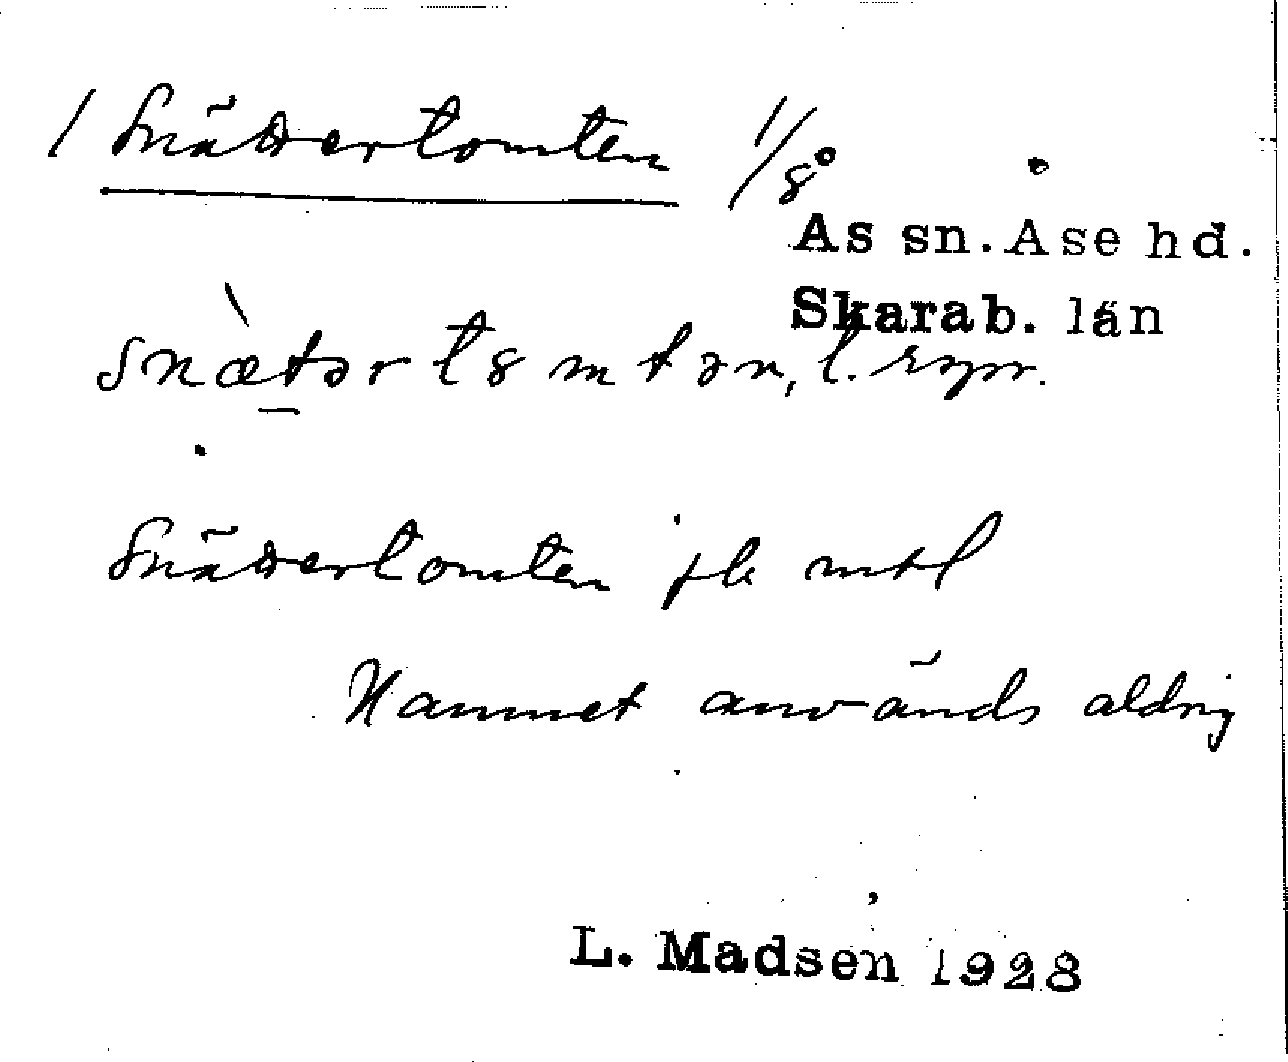 / Snättertomten 1/8
Ås sn. Åse hd.
Skarab. län
snætərt8mtən, l.
Snättertomten jb mtl
Namnet används aldrig
L. Madsen 1928